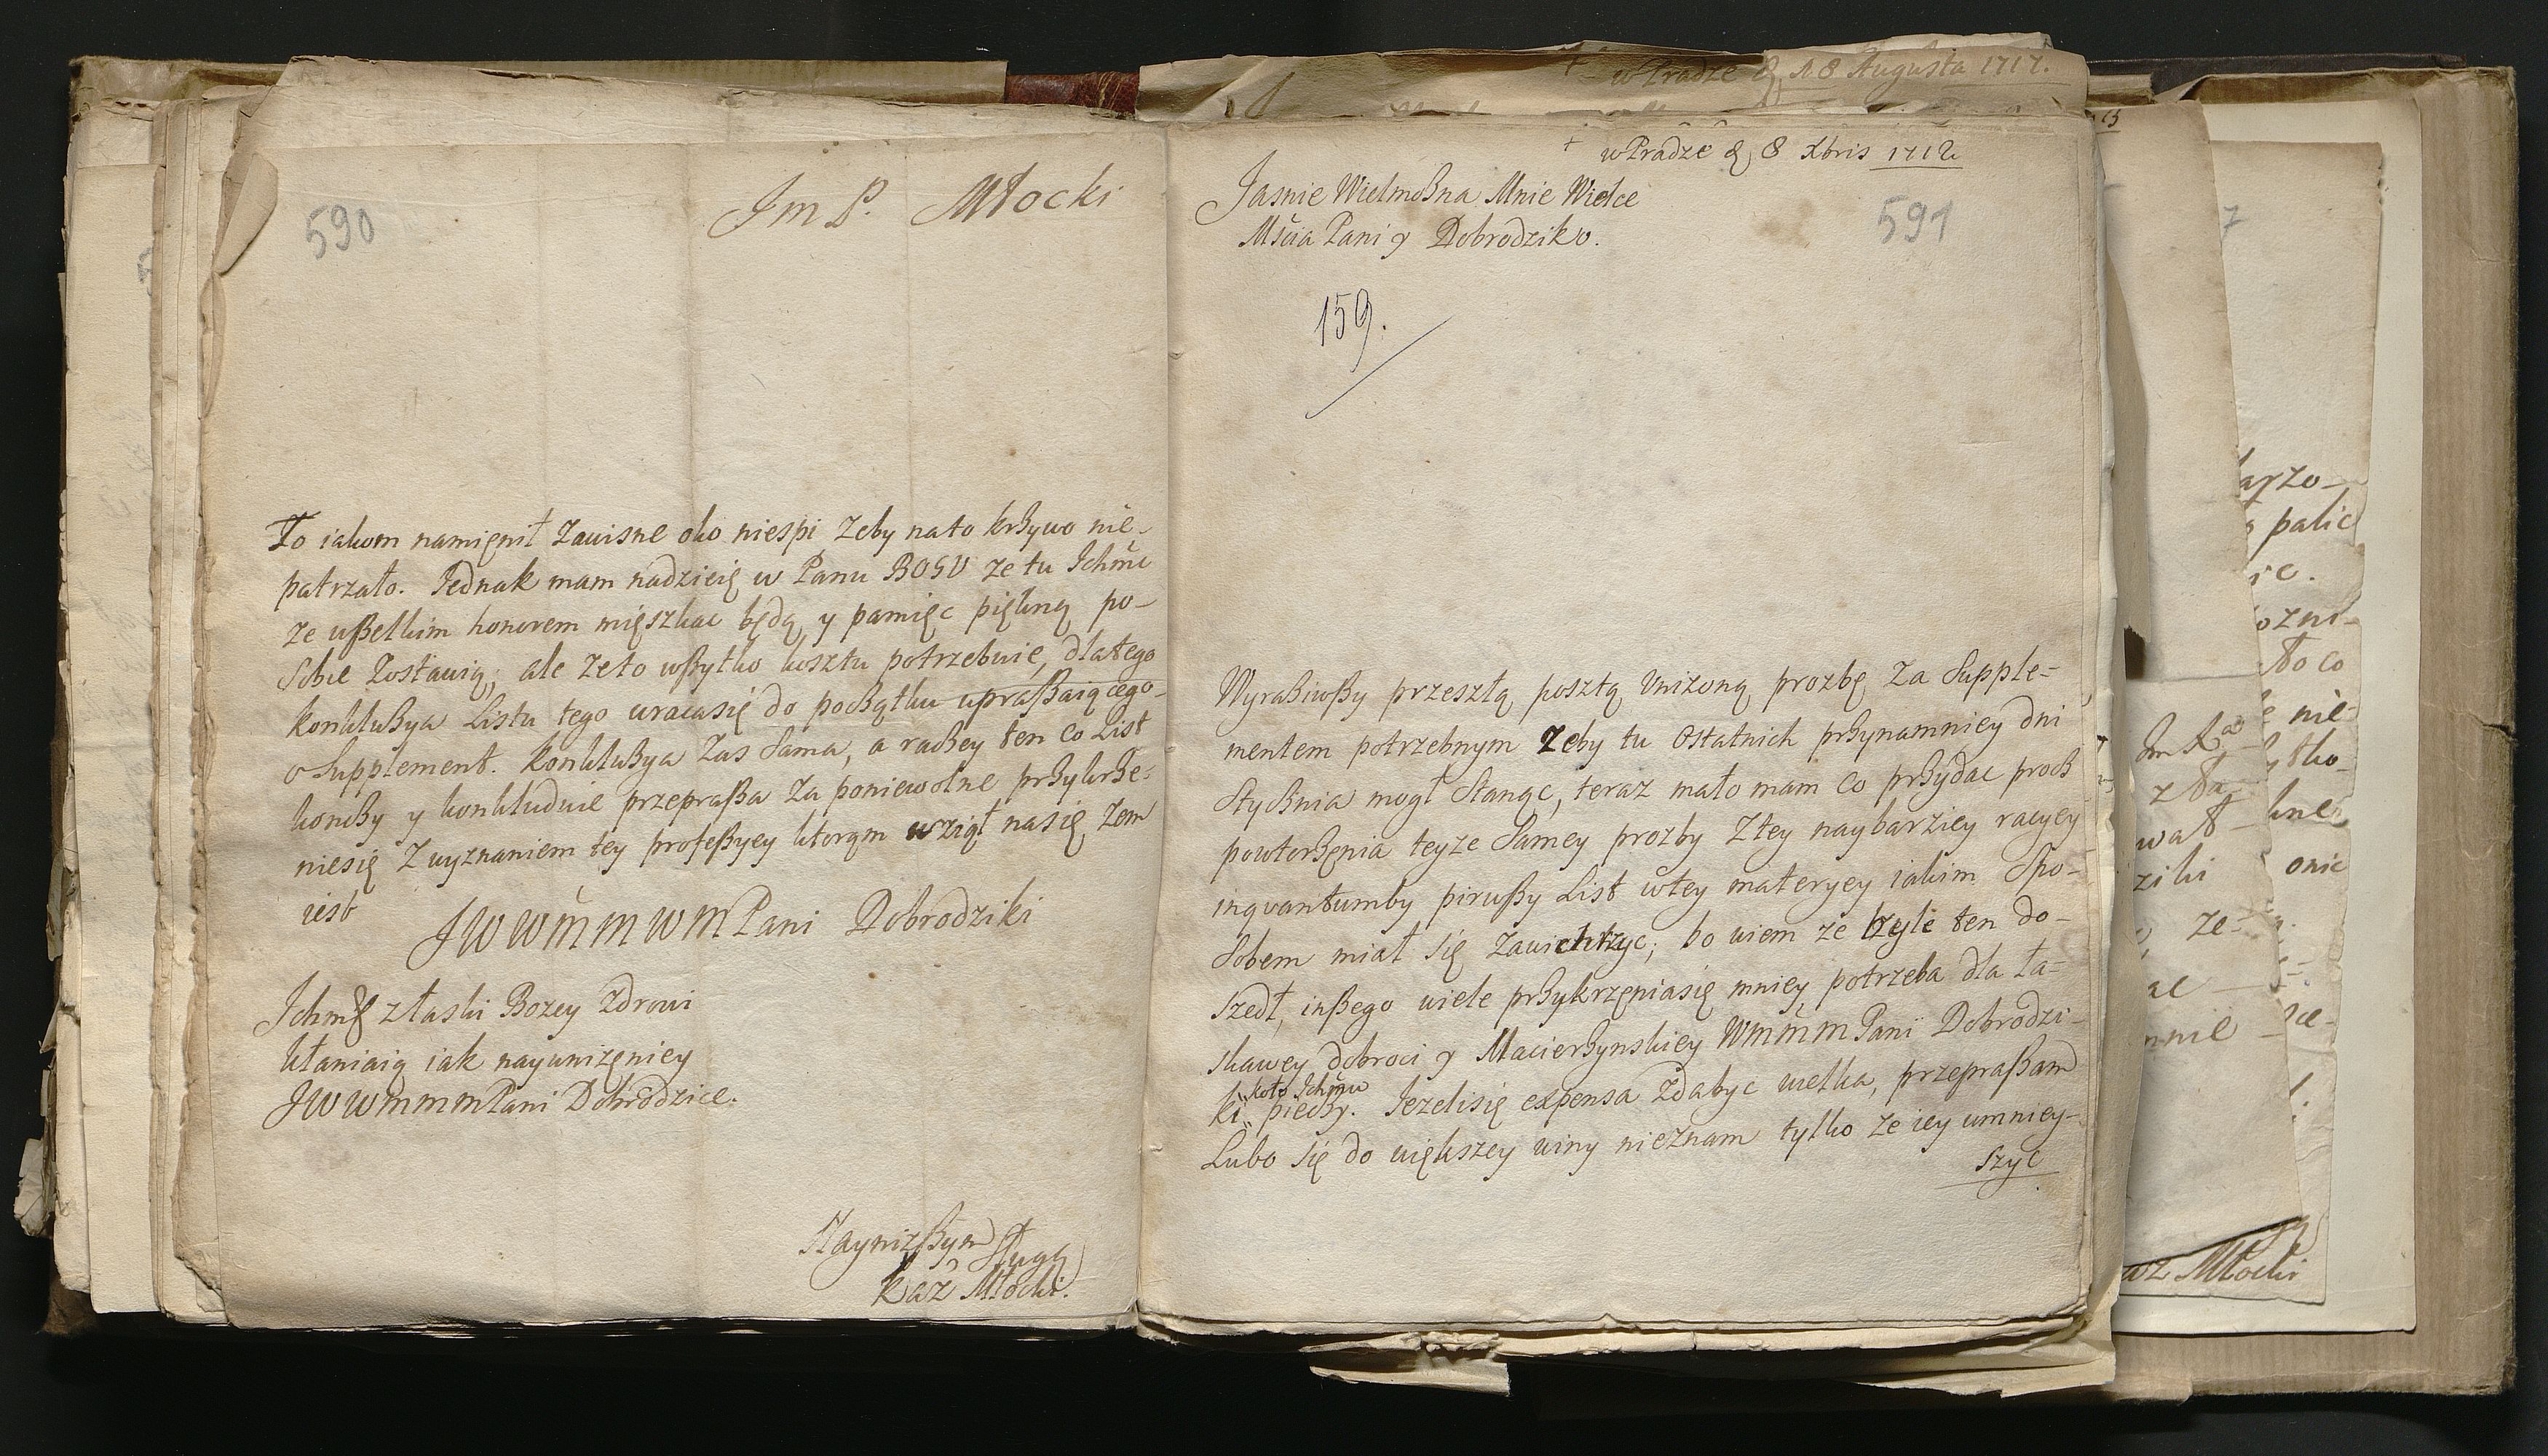 590
Jm P. Młocki
To iakom namięnił Zawisne oko niespi Zeby nato krzywo nie-
patrzało. Jednak mam nadzieię w Panu BOGU ze tu Ichmć
ze wßelkim honorem mięszkac będą y pamięc piękną po-
Sobie Zostawią; ale Zeto wßytko kosztu potrzebuie, dlatego
konkluzya Listu tego wracasię do początku upraßaiącego
o Supplement. Konkluzya Zas Sama, a raczey ten co List
konczy y konkluduie przepraßa Za poniewolne przykrze-
niesię Z wyznaniem tey profeßyey ktorąm wziął nasię Zem
iest
JWWMMWMPani Dobrodziki
Ichmć z łaski Bozey Zdrowi
kłaniaią iak nayunizęniey
JWWmmmPani Dobrodzice.
Naynizßym Sługą
Kaz Młocki.
w Pradze d 18 Augusta 1717.
+ w Pradze d 8 Xbris 1712
591
Jasnie Wielmozna Mnie Wielce
Mścia Pani y Dobrodziko.
159.
Wyraziwßy przeszłą posztą Unizoną prozbę Za Supple-
mentem potrzebnym Zeby tu Ostatnich przynamniey dni
Stycznia mogł Stanąc, teraz mało mam co przydac procz
powtorzęnia teyze Samey prozby Ztey naybarziey racyey
inqvantumby pirwßy List wtey materyey iakim Spo-
Sobem miał się Zawichrzyc; bo wiem ze byle ten do-
szedł, inßego wiele przykrzęniasię mniey potrzeba dla ła-
skawey dobroci y Macierzynskiey WmmmPani Dobrodzi-
koło Ichmćw
ki,, pieczy. Jezelisię expensa Zdabyc wielka, przepraßam
Lubo Się do większey winy nieznam tylko ze iey umniey-
szyc
arzo-
palic
ic.
ozni-
to co
nie-
onic
wał
ziki
ze-
ac
mnie
az Młocki